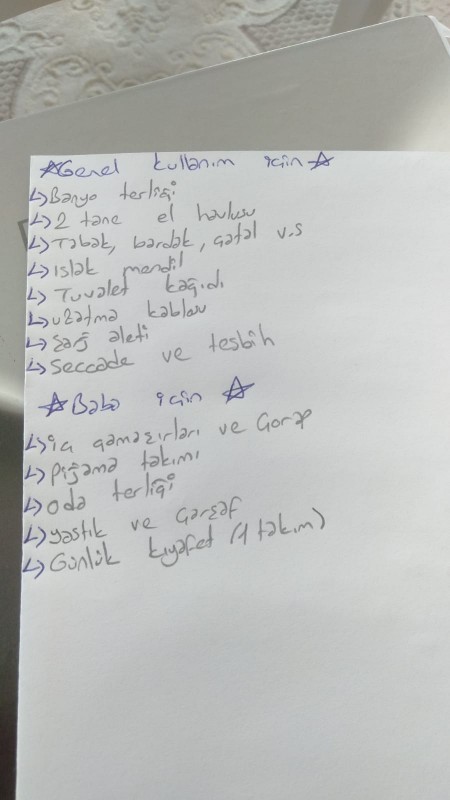 ☆Genel kullanım için☆
↳Banyo terliği
↳2 tane el havlusu
↳Tabak, bardak, çatal v.s
↳ıslak mendil
↳Tuvalet kağıdı
↳uzatma kablosu
↳Şarj aleti
↳Seccade ve tesbih
☆Baba için☆
↳iç çamaşırları ve Çorap
↳Pijama takımı
↳oda terliği
↳yastık ve Çarşaf
↳Günlük kıyafet (1 takım)